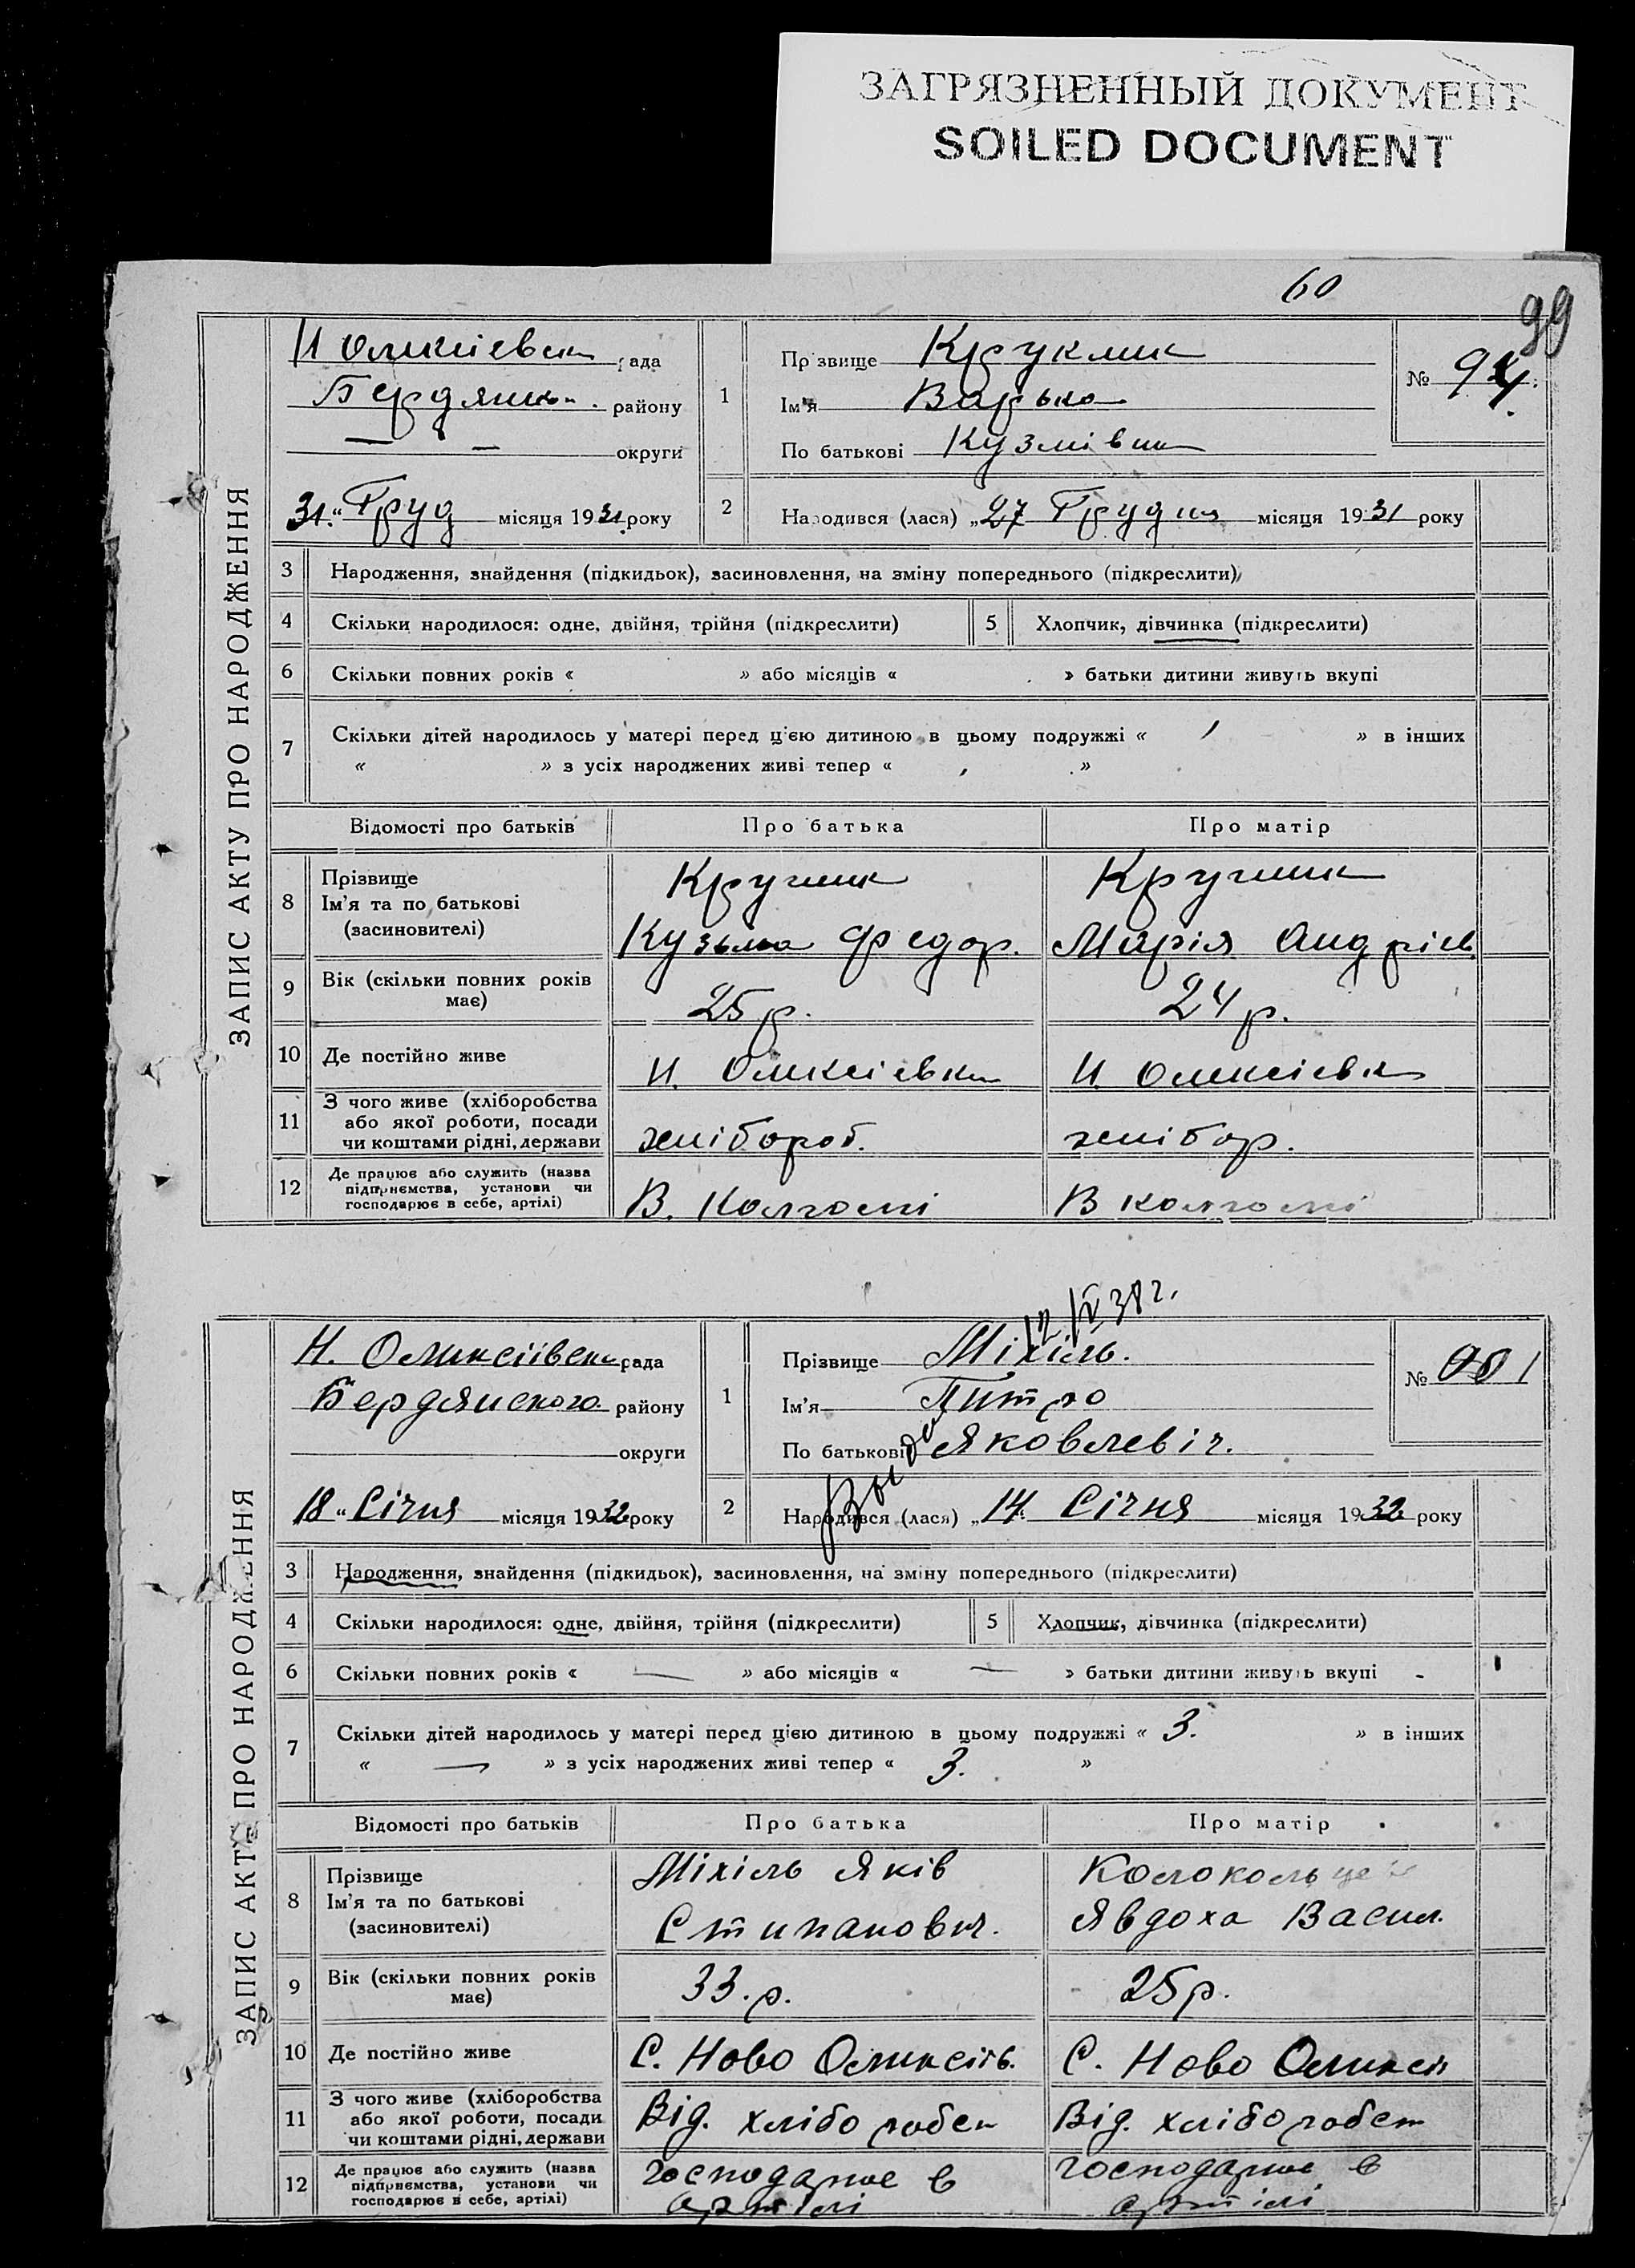 ЗАГРЯЗНЕННЫЙ ДОКУМЕНТ
SOILED DOCUMENT
60
99
ЗАПИС АКТУ ПРО НАРОДЖЕННЯ
рада
району
округи
31 " Груд місяця 1931 року
1
Прізвище
Ім'я Варька
По батькові Кузмівна
№ 94
2
Народився (лася) „ 27 Грудня місяця 1931 року
3 Народження, знайдення (підкидьок), засиновлення, на зміну попереднього (підкреслити)
4 Скільки народилося: одне, двійня, трійня (підкреслити)
5 Хлопчик, дівчинка (підкреслити)
6 Скільки повних років « » або місяців « » батьки дитини живуть вкупі
7 Скільки дітей народилось у матері перед цією дитиною в цьому подружжі « » в інших
« » з усіх народжених живі тепер « »
Відомості про батьків
Про батька
Про матір
8 Прізвище
Ім'я та по батькові
(засиновителі)
Кузьма Федор.
Марія Андріев
9 Вік (скільки повних років
має)
25 р.
24 р.
10 Де постійно живе
Н. Олексіевка
Н. Олексіевка
11 З чого живе (хліборобства
або якої роботи, посади
чи коштами рідні, держави
хлібороб.
хлібор.
12 Де працює або служить (назва
підприємства, установи чи
господарює в себе, артілі)
В. Колгоспі
В колгоспі
12/V 38 г.
ЗАПИС АКТУ ПРО НАРОДЖЕННЯ
Н. Олексіївська рада
Бердянского району
округи
18 " Січня місяця 1932 року
1
Прізвище Міхіль.
Ім'я Питро
По батькові Яковлевіч.
№
2
Народився (лася) „ 14 Січня місяця 1932 року
3 Народження, знайдення (підкидьок), засиновлення, на зміну попереднього (підкреслити)
4 Скільки народилося: одне, двійня, трійня (підкреслити)
5 Хлопчик, дівчинка (підкреслити)
6 Скільки повних років « — » або місяців « — » батьки дитини живуть вкупі -
7 Скільки дітей народилось у матері перед цією дитиною в цьому подружжі « 3. » в інших
« — » з усіх народжених живі тепер « 3. »
Відомості про батьків
Про батька
Про матір
8 Прізвище
Ім'я та по батькові
(засиновителі)
Міхіль Яків
Стипанович.
Явдоха Васил.
9 Вік (скільки повних років
має)
33. р.
25 р.
10 Де постійно живе
С. Ново Оликсіїв.
С. Ново Оликсії
11 З чого живе (хліборобства
або якої роботи, посади
чи коштами рідні, держави
Від. хлібо робст
Від. хлібо робст
12 Де працює або служить (назва
підприємства, установи чи
господарює в себе, артілі)
господарює в
артілі
господарює в
артілі